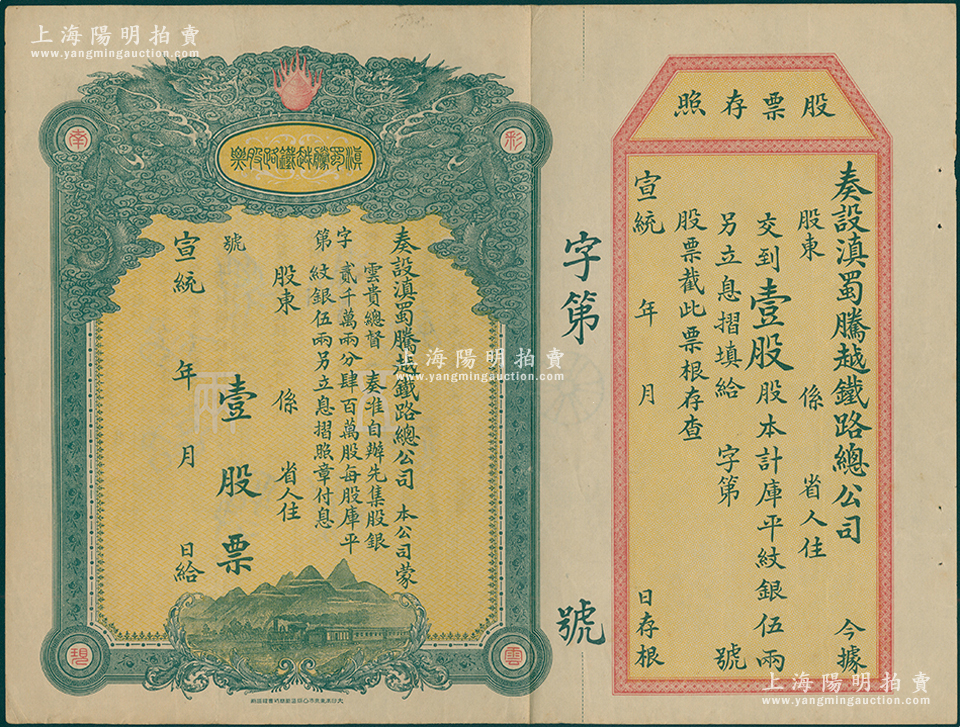 上海陽明拍賣
www.yangmingauction.com
股票存照
奏設滇蜀騰越鐵路總公司 今據
股東 係 省人住
交到壹股股本計庫平紋銀伍兩
另立息摺填給 字第 號
股票截此票根存查
宣統 年 月 日存根
字第 號
滇蜀騰越鐵路股票
彩
雲
南
現
奏設滇蜀騰越鐵路總公司 本公司蒙
雲貴總督 奏准自辦先集股銀
貳千萬兩分肆百萬股每股庫平
紋銀伍兩另立息摺照章付息
字第 號
股東 係 省人住
壹股票
宣統 年 月 日給
伍
兩
上海陽明拍賣
www.yangmingauction.com
上海陽明拍賣
www.yangmingauction.com
上海陽明拍賣
www.yangmingauction.com